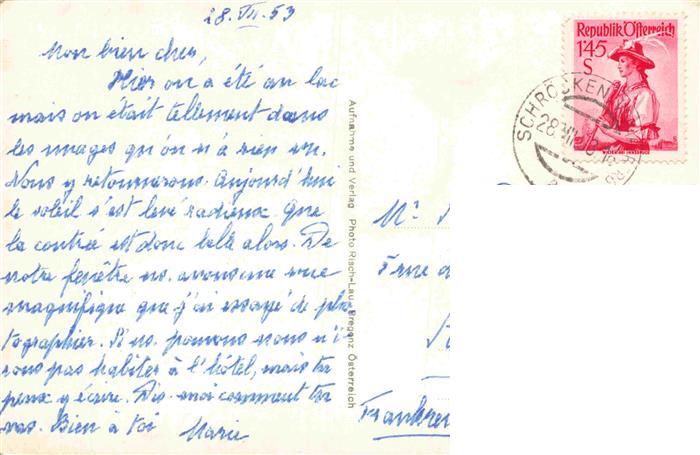 28.VII.53
Mon bien cher,
Hier on a été au lac
mais on était tellement dans
les nuages qu'on n'a rien vu.
Nous y retournerons. Aujourd'hui
le soleil s'est levé radieux. Que
la contrée est donc belle alors. De
notre fenêtre ns. avons une vue
magnifique que j'ai essayé de pho
tographier. Si ns. pouvons nous n'i
rons pas habiter à l'hôtel, mais tu
peux y écrire. Dis-moi comment tu
vas. Bien à toi
Marie
Aufnahme und Verlag Photo Risch-Lau, Bregenz Österreich
Republik Österreich
1'45
S
SCHRÖCKEN
28.VII.53
Mr.
5 rue
Frankre